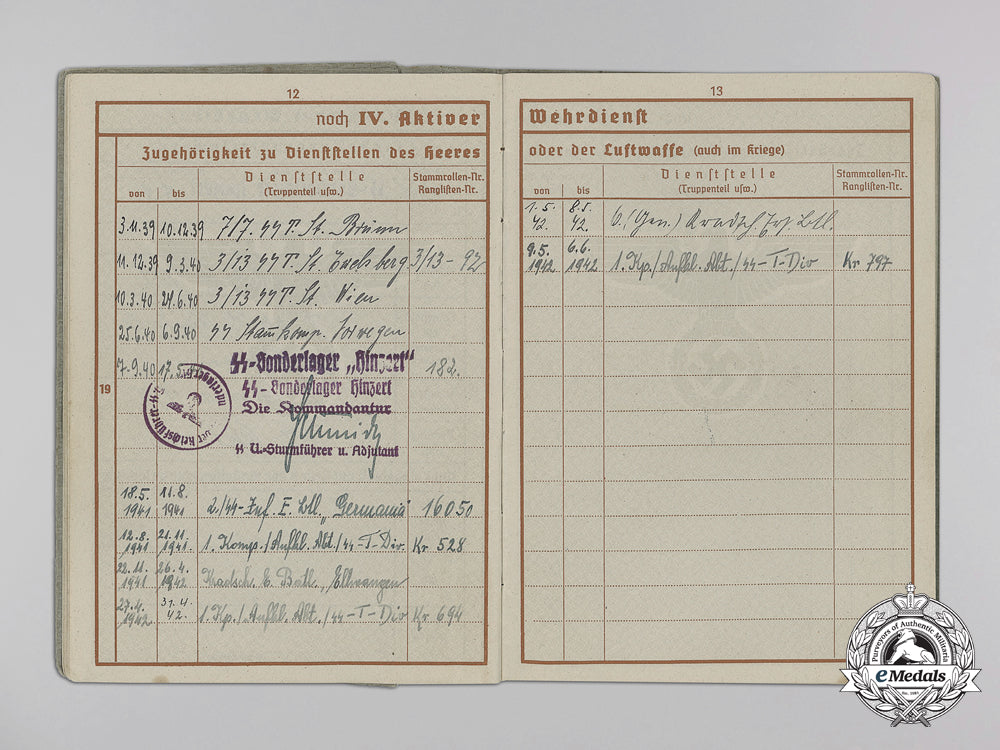 12
noch IV. Aktiver
Zugehörigkeit zu Dienststellen des Heeres
von
bis
Dienststelle
(Truppenteil usw.)
Stammrollen-Nr.
Ranglisten-Nr.
3.11.39 10.12.39 7/7. SS T. St. Brünn
11.12.39 9.3.40 3/13 SS T. St. 3/13-92
10.3.40 24.6.40 3/13 SS T. St. Wien
25.6.40 6.9.40 SS Norwegen
7.9.40 17.5. SS-Sonderlager „Hinzert" 182.
19
SS-Sonderlager Hinzert
Die Kommandantur
SS U.-Sturmführer u. Adjutant
Der Reichsführer-SS
18.5. 1941 11.8. 1941 2./SS-Inf. E. Btl. „Germania" 16050
12.8. 1941 21.11. 1941. 1. Komp./Aufkl. Abt./SS-T-Div. Kr 528
22.11. 1941 26.4. 1942 Kradsch. E. Batl., Ellwangen
27.4. 1942 31.4. 42. 1. Kp./Aufkl. Abt./SS-T-Div Kr 694
13
Wehrdienst
oder der Luftwaffe (auch im Kriege)
von
bis
Dienststelle
(Truppenteil usw.)
Stammrollen-Nr.
Ranglisten-Nr.
1.5. 42. 8.5. 42. 6. (Gen.) Kradsch. Ers. Btl.
9.5. 1942 6.6. 1942 1. Kp./Aufkl. Abt./SS-T-Div Kr 797
Purveyors of Authentic Militaria
eMedals